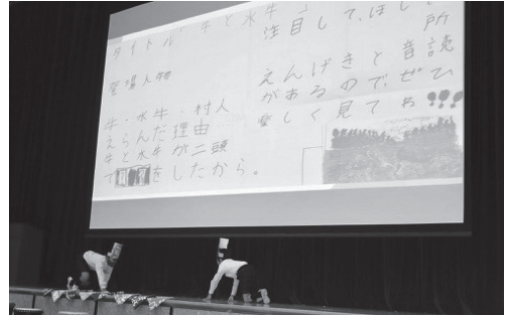 タイトル「牛と水牛」
登場人物
牛・水牛・村人
えらんだ理由
牛と水牛が二頭
で
をしたから。
注目して、ほし
所
えんげきと音読
があるので、ぜひ
楽しく見てね